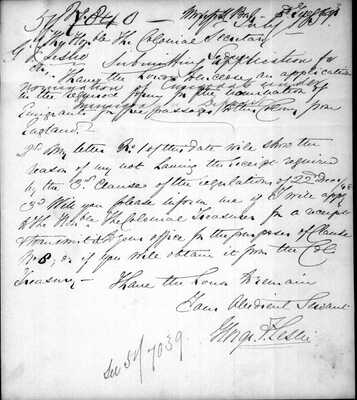 The Honble The Colonial Secretary
Submitting application for
Sir, I have the honor to enclose an application
in the required form for the nomination of
Emigrants for free passages to the Colony from
England.
2o My letter No 1 of this date will show the
reason of my not having the receipt required
by the 3rd Clause of the regulations of 22 Decr
3o Will you please inform me if I will apply
to The Honble The Colonial Treasurer for a receipt
& transmit it to your office for the purposes of Clause
No 8, or if you will obtain it from the Col
Treasury —
I have the honor to remain
Your Obedient Servant
George F Leslie
See 58/7039